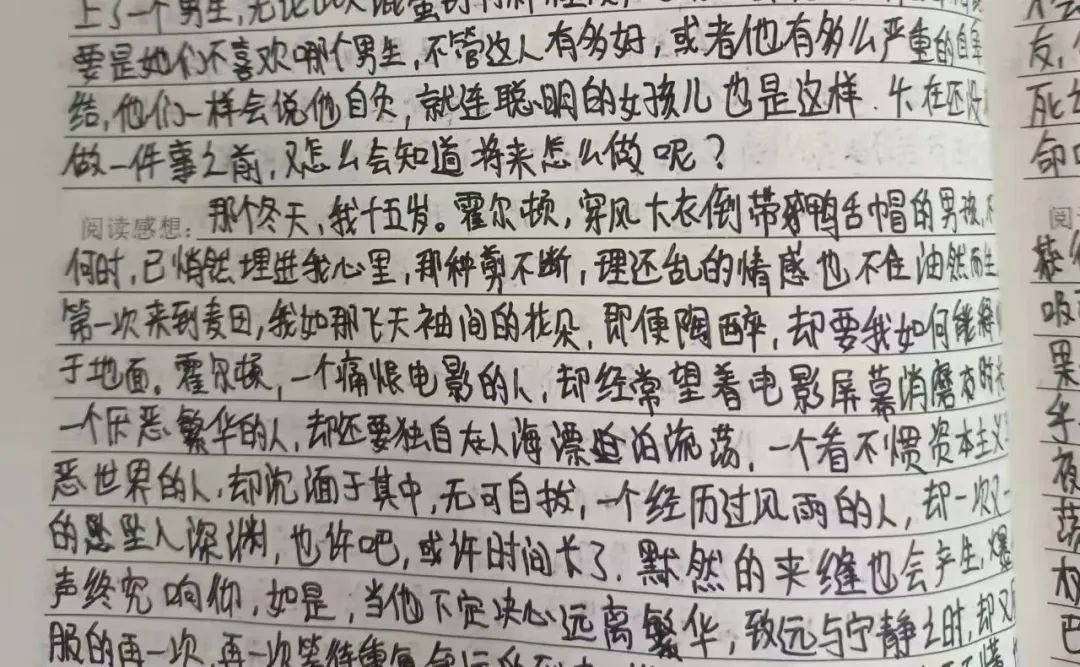 上了一个男生,无论此人混蛋到何
要是她们不喜欢哪个男生,不管这人有多好,或者他有多么严重的自卑
结,他们一样会说他自负,就连聪明的女孩儿也是这样.
做一件事之前,又怎么会知道将来怎么做呢?
阅读感想: 那个冬天,我十五岁。霍尔顿,穿风大衣倒带鸭舌帽的男孩,不
何时,已悄然埋进我心里,那种剪不断,理还乱的情感也不住油然而生
第一次来到麦田,我如那飞天袖间的花朵,即便陶醉,却要我如何能
于地面。霍尔顿,一个痛恨电影的人,却经常望着电影屏幕消磨
一个厌恶繁华的人,却还要独自在人海漂迫泊流荡,一个看不惯资本主义
恶世界的人,却沉湎于其中,无可自拔,一个经历过风雨的人,却一次又一
的坠入深渊,也许吧,或许时间长了.默然的夹缝也会产生,爆
声终究响仰,如是,当他下定决心远离繁华,致远与宁静之时,却又
服的再一次,再一次等待重复
友,
死
命
吸
果
乎
夜